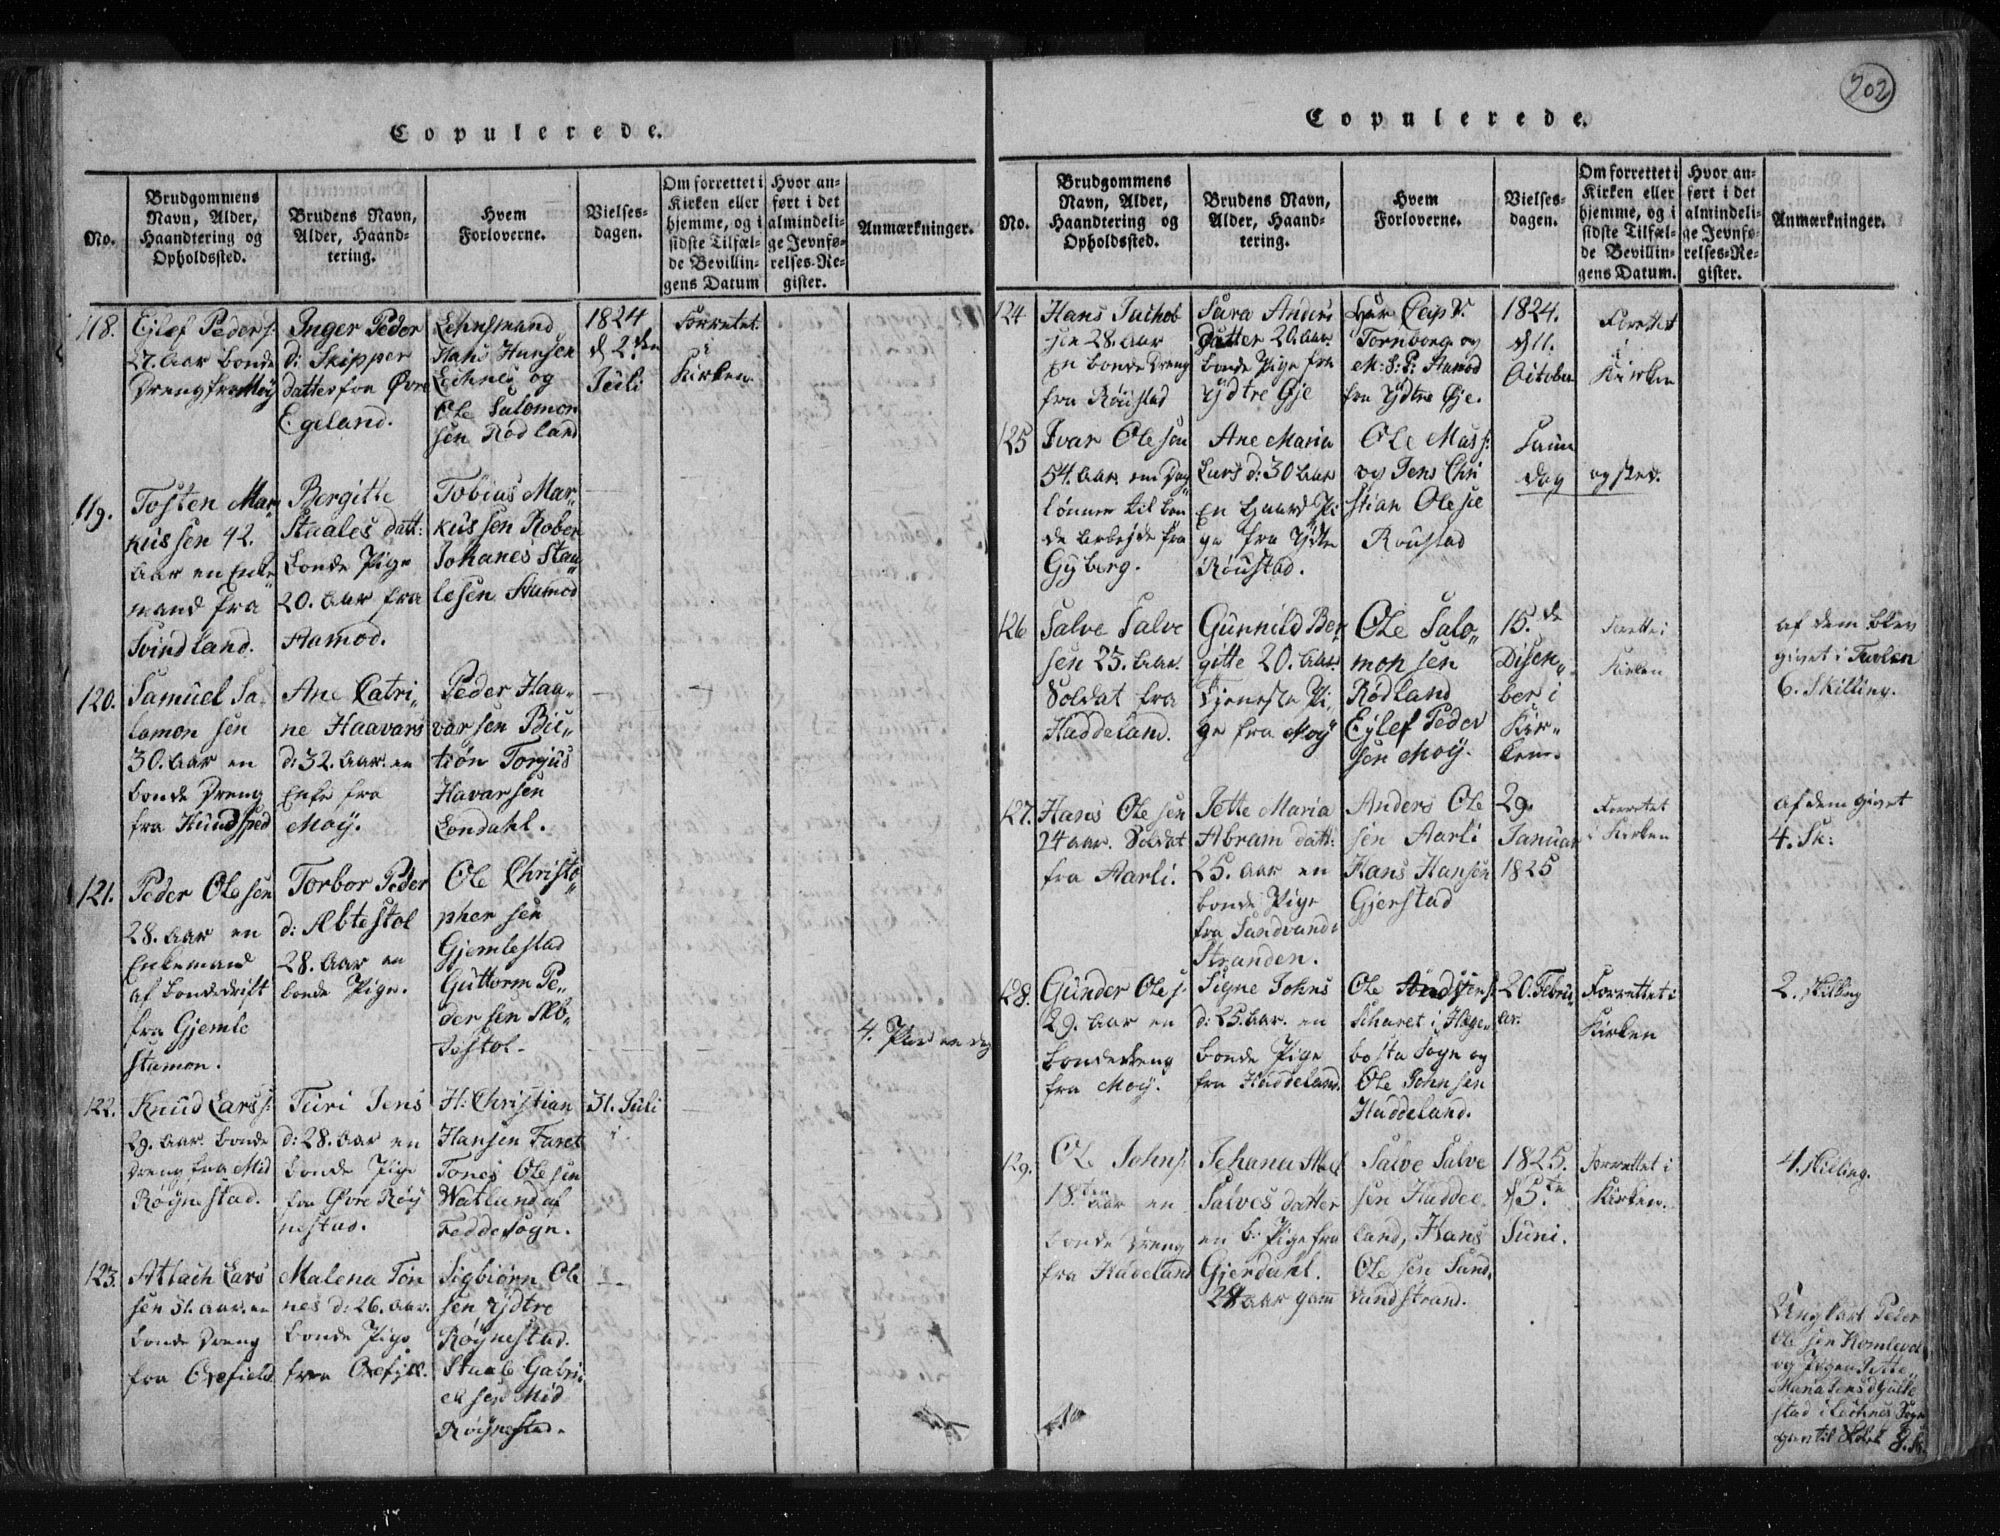 202
Copulerede.
No.
Brudgommens
Navn, Alder,
Haandtering og
Opholdssted.
Brudens Navn,
Alder, Haand-
tering.
Hvem
Forloverne.
Vielses-
dagen.
Om forrettet i
Kirken eller
hjemme, og i
sidste Tilfæl-
de Bevillin-
gens Datum
Hvor an-
ført i det
almindeli-
ge Jevnfø-
relses-Re-
gister.
Anmærkninger.
118.
Ejlef Peders:
27. Aar bonde
Dreng fra Moÿ
Inger Peder
d: Skipper
datter fra Øvre
Egeland.
Lehnsmand
Hans Hansen
Lechnes og
Ole Salomon
sen Rødland
1824
d 2den
Juli
Forrettet
i
Kirken
119.
Tosten Mar
kussen 42.
Aar en Enke
mand fra
Svindland.
Bergitte
Staales datt:
bonde Pige
20. Aar fra
Aamod.
Tobias Mar
kussen
Johanes Staa
lesen Aamod
120.
Samuel Sa
lamon sen
30. Aar en
bonde Dreng
fra
Ane Catri
ne Haavars
d: 32. Aar. en
Enke fra
Moÿ.
Peder Haa
varsen
Torgius
Havarsen
Londahl.
121.
Peder Olesen
28. Aar en
Enkemand
af bondedrift
fra Gjemle
stamon.
Torbor Peder
d: Æbtestol
28. Aar en
bonde Pige.
Ole Christo
pher sen
Gjemlestad
Guttorm Pe
dersen Æb
testol.
122.
Knud Lars:
29. Aar. bonde
Dreng fra Mid
Røÿnestad.
Turi Jens
d: 28. Aar en
bonde Pige
fra Øvre Røÿ
nestad.
H: Christian
Hansen Faret
Tones Olesen
Watland af
Feddesogn.
31. Juli
123.
Atlach Lars
sen 31. Aar. en
bonde Dreng
fra Oxefield
Malena Tøn
nes d: 26. Aar.
bonde Pige
fra
Sigbiørn Ole
sen Ÿdtre
Røÿnestad.
Staale Gabri
elsen Mid
Røÿnestad.
Copulerede.
No.
Brudgommens
Navn, Alder,
Haandtering og
Opholdssted.
Brudens Navn,
Alder, Haand-
tering.
Hvem
Forloverne.
Vielses-
dagen.
Om forrettet i
Kirken eller
hjemme, og i
sidste Tilfæl-
de Bevillin-
gens Datum.
Hvor an-
ført i det
almindeli-
ge Jevnfø-
relses-Re-
gister.
Anmærkninger.
124
Hans Jachob
sen 28. Aar
en bonde Dreng
fra Røustad
Sara Anders
Datter 20. Aar
bonde Pige fra
Ÿdtre Øje
Her Cap:
Tornborg og
Aamod
fra Ÿdtre Øje.
1824.
d 11.
October
Forrettet
i
Kirken
125
Ivar Olesen
54. Aar. en Dag
lønner til bon
de Arbejde fra
Gÿberg.
Ane Maria
Lars d: 30 Aar
En Gaard Pi
ge fra Ÿdtre
Røustad.
Ole Mas s:
og Jens Chri
stian Olese
Roustad
Samme
Dag
og sted.
126
Salve Salve
sen 25. Aar.
Soldat fra
Haddeland.
Gunnild Ber
gitte 20. Aar
Tjeneste Pi
ge fra Moÿ
Ole Salo
mon sen
Rødland
Ejlef Peder
sen Moÿ.
15. de
Disen
ber i
Kir
ken.
Forrette i
Kirken
af dem blev
givet i Tavlen
6. Skilling.
127.
Hans Olesen
24 aar. Soldat
fra Aarli.
Jette Maria
Abram datt:
25. Aar en
bonde Pige
fra Sandvand
Stranden.
Anders Ole
sen Aarli
Hans Hansen
Gjerstad
29.
Januar
1825
Forrettet
i Kirken
af dem givet
4. Sk:
128.
Gunder Ole s:
29. Aar en
bonde Dreng
fra Moÿ.
Signe Johns
d: 25. Aar. en
bonde Pige
fra Haddeland.
Ole
i Hege
bosta Sogn og
Ole Johnsen
Haddeland.
20. Febru
ar.
Forrettet i
Kirken
2. Skilling
129.
Ole Johns:
18.ten Aar en
bonde Dreng
fra Hadeland
Jehana
Salves datter
en b: Pige fra
Gjerdahl.
28 Aar gam̄
Salve Salve
sen Haddel
land, Hans
Olesen Sand
vandstrand.
1825.
d 5.te
Juni.
Forrettet i
Kirken.
4. Skilling.
Ungkarl Peder
Olesen
og Pigen Jette
Maria Jens d
stad i Lechnes Sogn
gav til